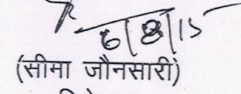 6/8/15
(सीमा जौनसारी)